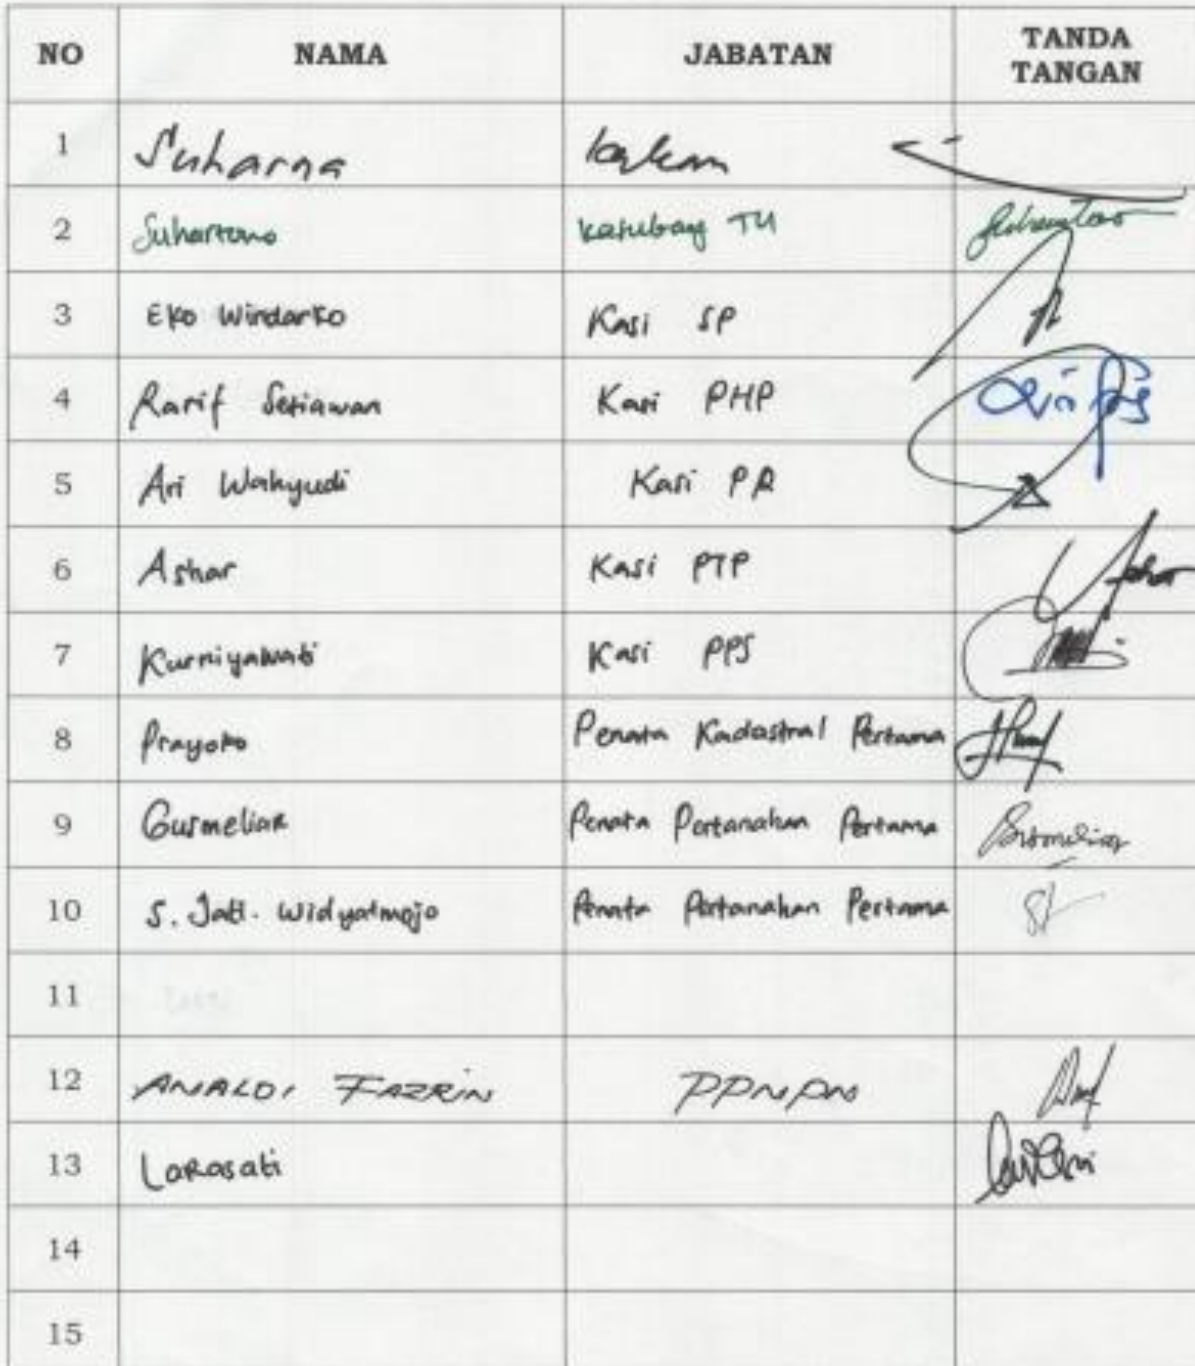 NO NAMA JABATAN TANDA TANGAN
1 Suharna
2 Suhartono Kasubbag TU
3 Eko Windarko Kasi SP
4 Rarif Setiawan Kasi PHP
5 Ari Wahyudi Kasi PP
6 Ashar Kasi PTP
7 Kurniyawati Kasi PPS
8 Prayoko Penata Kadastral Pertama
9 Gusmeliar Penata Pertanahan Pertama
10 S. Jati. Widyatmojo Penata Pertanahan Pertama
11
12 ANALDI FAZRIN PPNPN
13 Larasati
14
15